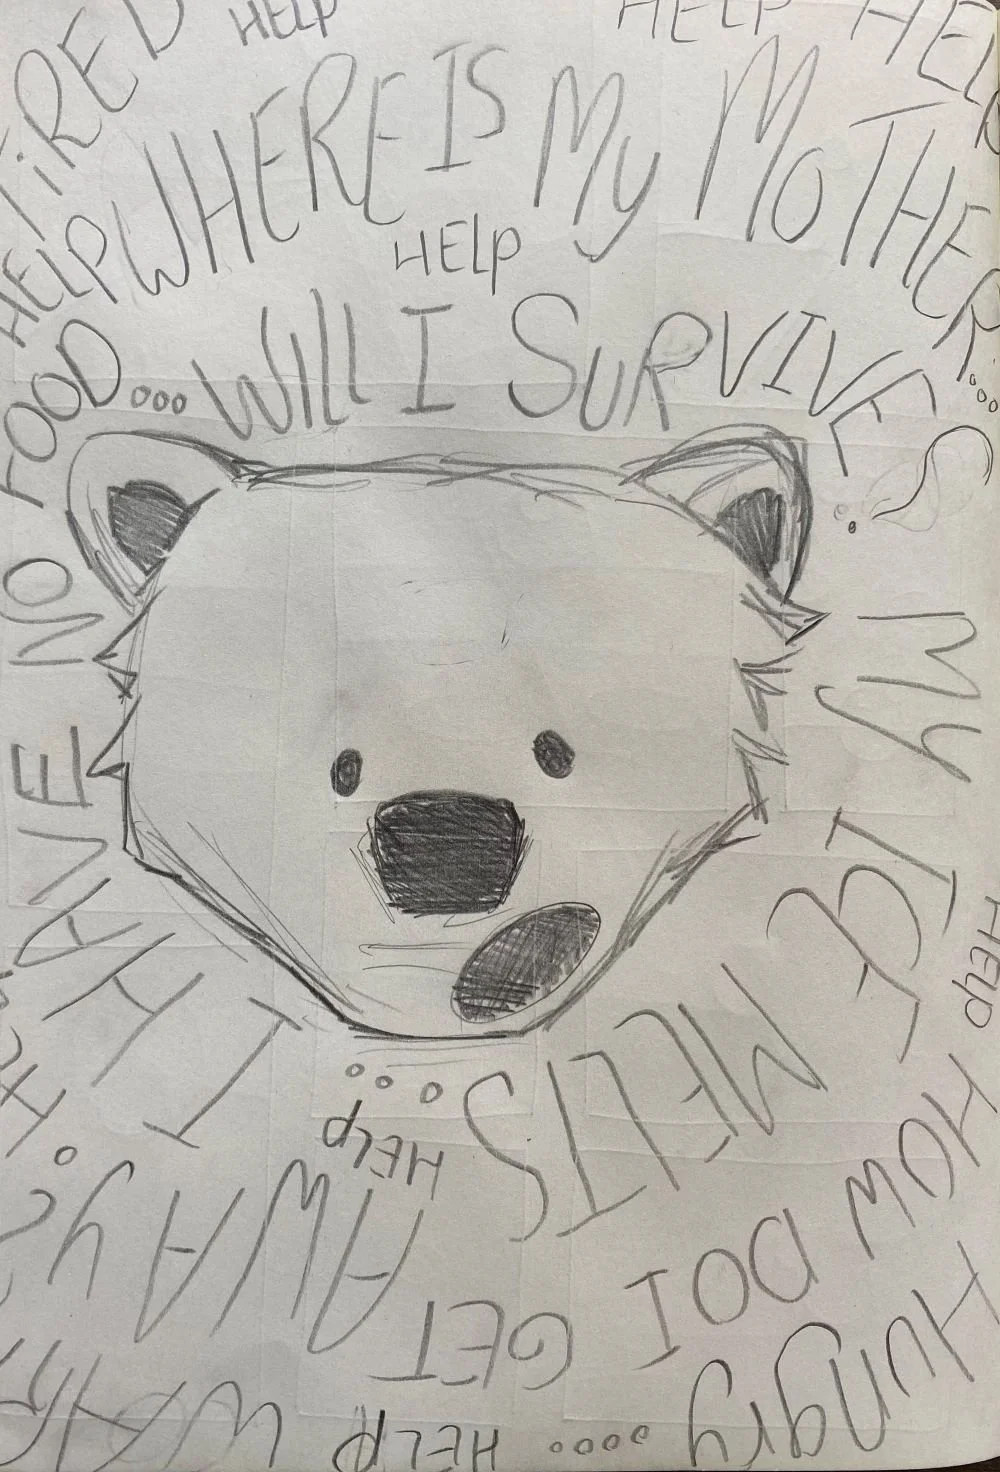 TiRED
HELP
HELP
HELP
HELP
WHERE IS My MOTHER...
HELP
WILL I SURVIVE?
MY ICE MELTS...
I HAVE NO FOOD...
HELP
HELP
HOW DO I GET AWAY?
HUngry....
HELP